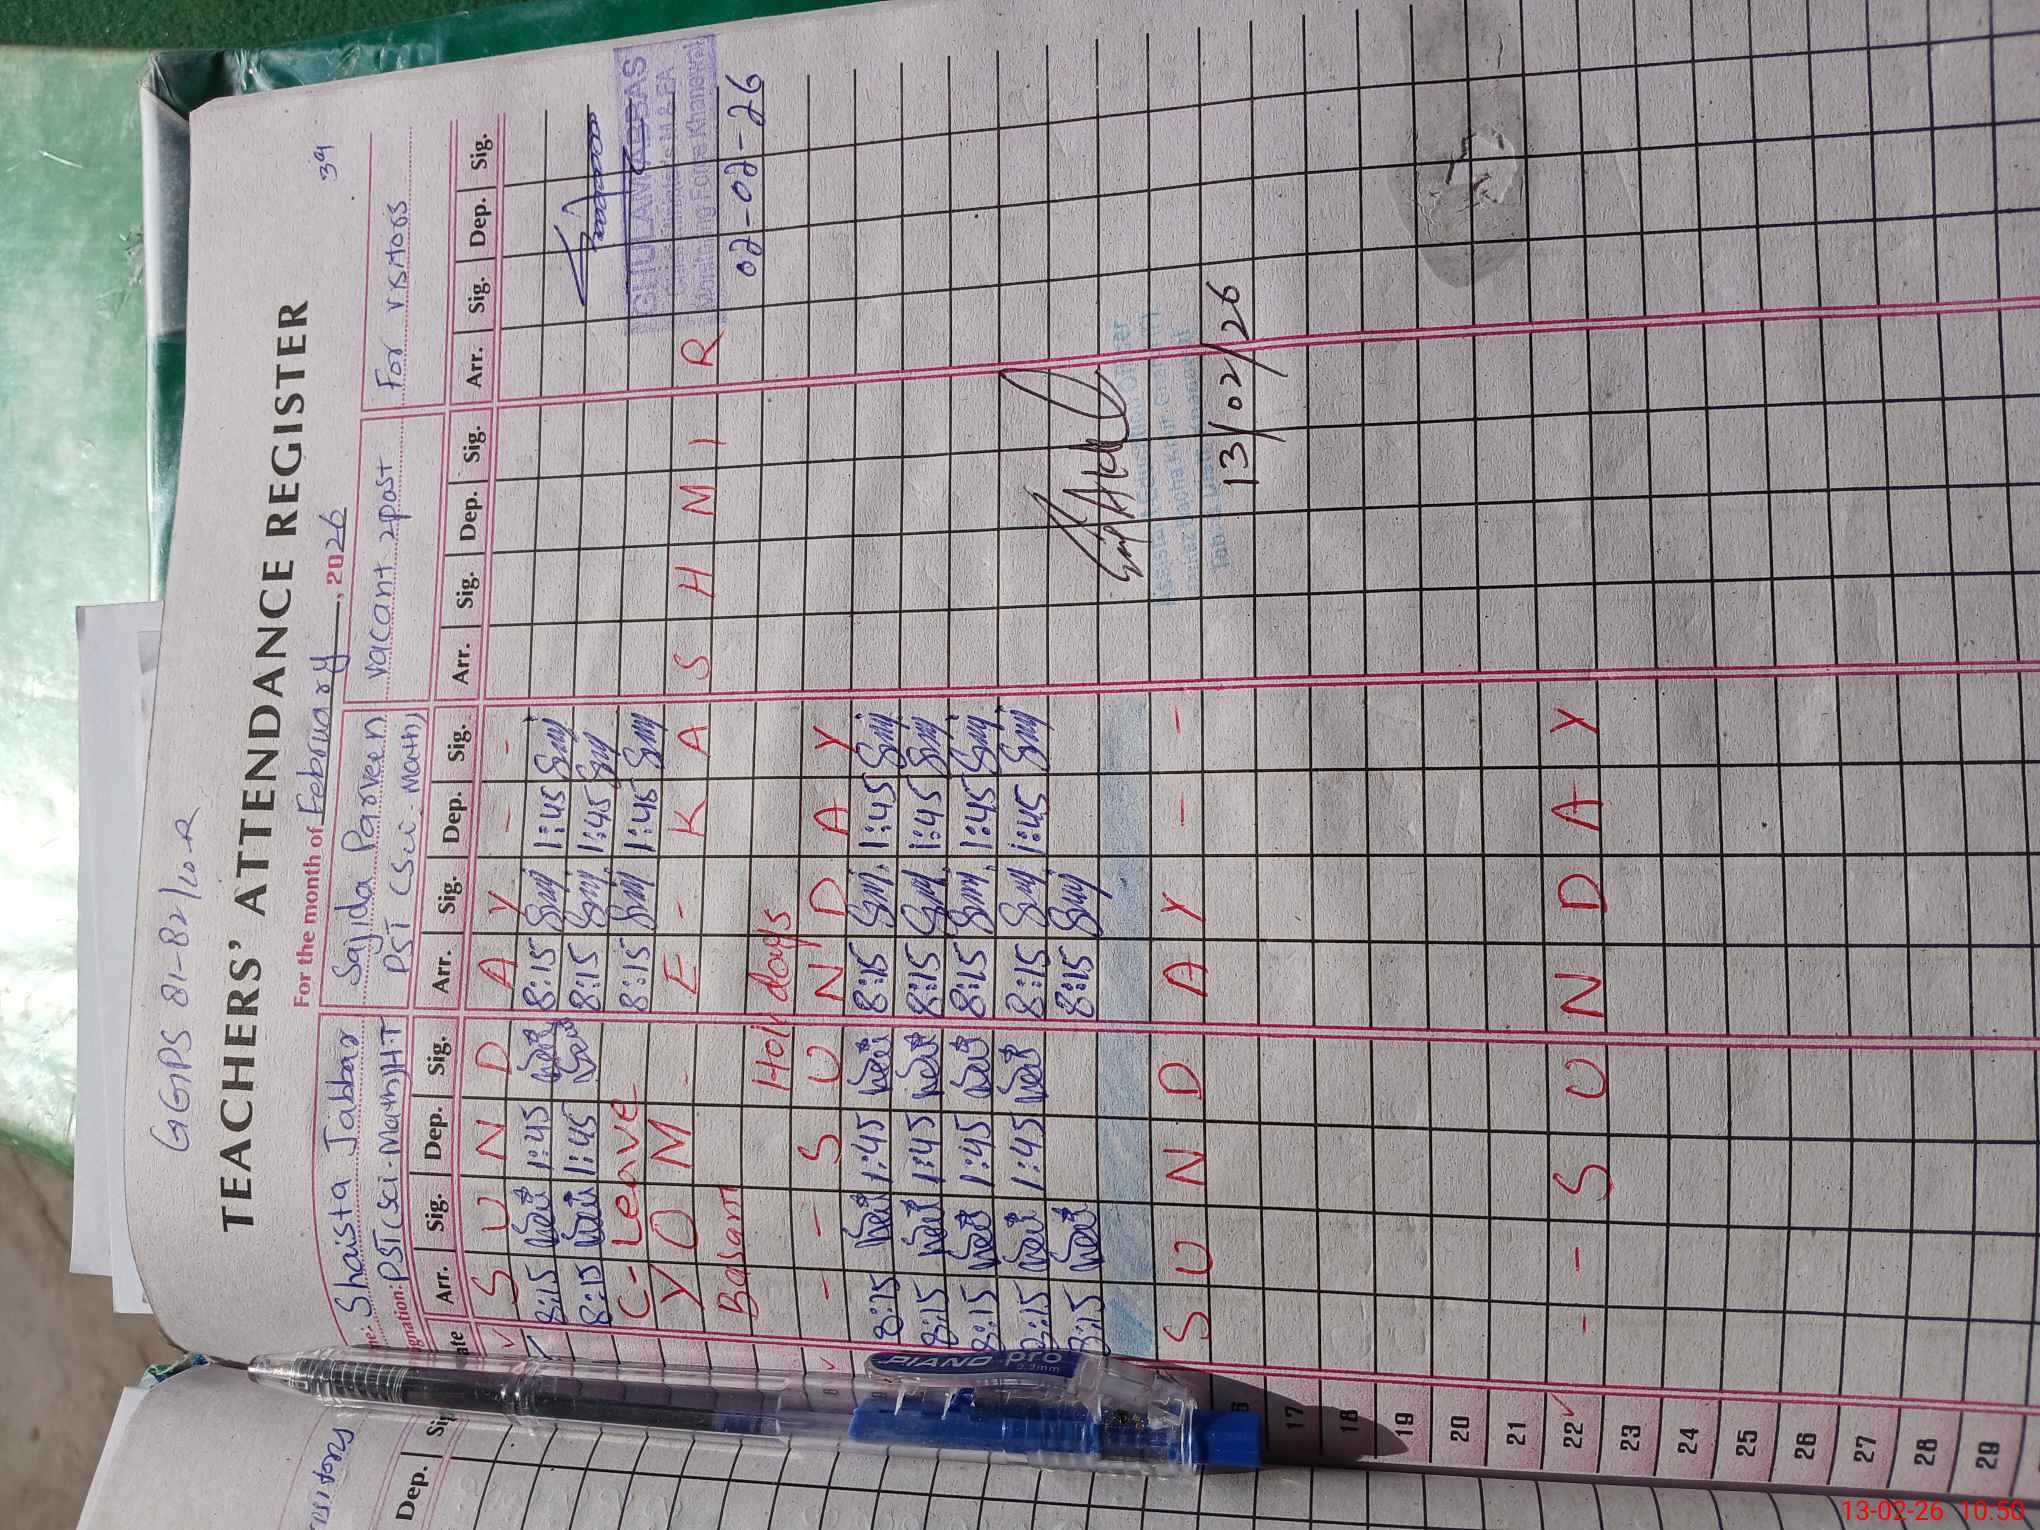 GGPS 81-82/10-R
39
TEACHERS' ATTENDANCE REGISTER
For the month of February, 2026
Shaista Jabbar
Sajida Parveen
vacant 2post
For visitors
PST (Sci-Math) HT
PST (Sci-Math)
Arr. Sig. Dep. Sig. Arr. Sig. Dep. Sig. Arr. Sig. Dep. Sig. Arr. Sig. Dep. Sig.
S U N D A Y - -
8:15 1:45 8:15 1:45
8:15 1:45 8:15 1:45
C-Leave 8:15 1:45
Y O M - E - K A S H M I R
GHULAM ABBAS
Monitoring Force Khanewal
02-02-26
Basant Holidays
- - S U N D A Y
8:15 1:45 8:15 1:45
8:15 1:45 8:15 1:45
8:15 1:45 8:15 1:45
8:15 1:45 8:15 1:45
8:15 8:15
Assistant Education Officer
S U N D A Y - -
13/02/26
17
18
19
20
21
22 - - S U N D A Y
23
24
25
26
27
28
29
visitors
Dep.
PIANO pro
0.8mm
13-02-26 10:50